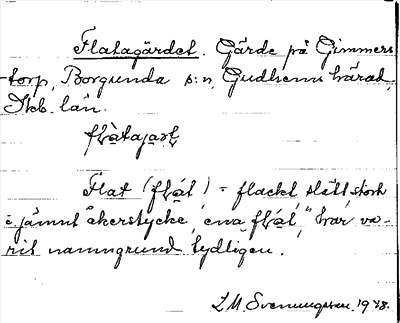 Flatagärdet. Gärde på Gimmers
-torp, Borgunda s:n, Gudhems härad,
Skb. län.
Flat = flackt, slätt, stort
o. jämnt åkerstycke, har va-
rit namngrund tydligen.
L. M. Svenungsson. 1978.